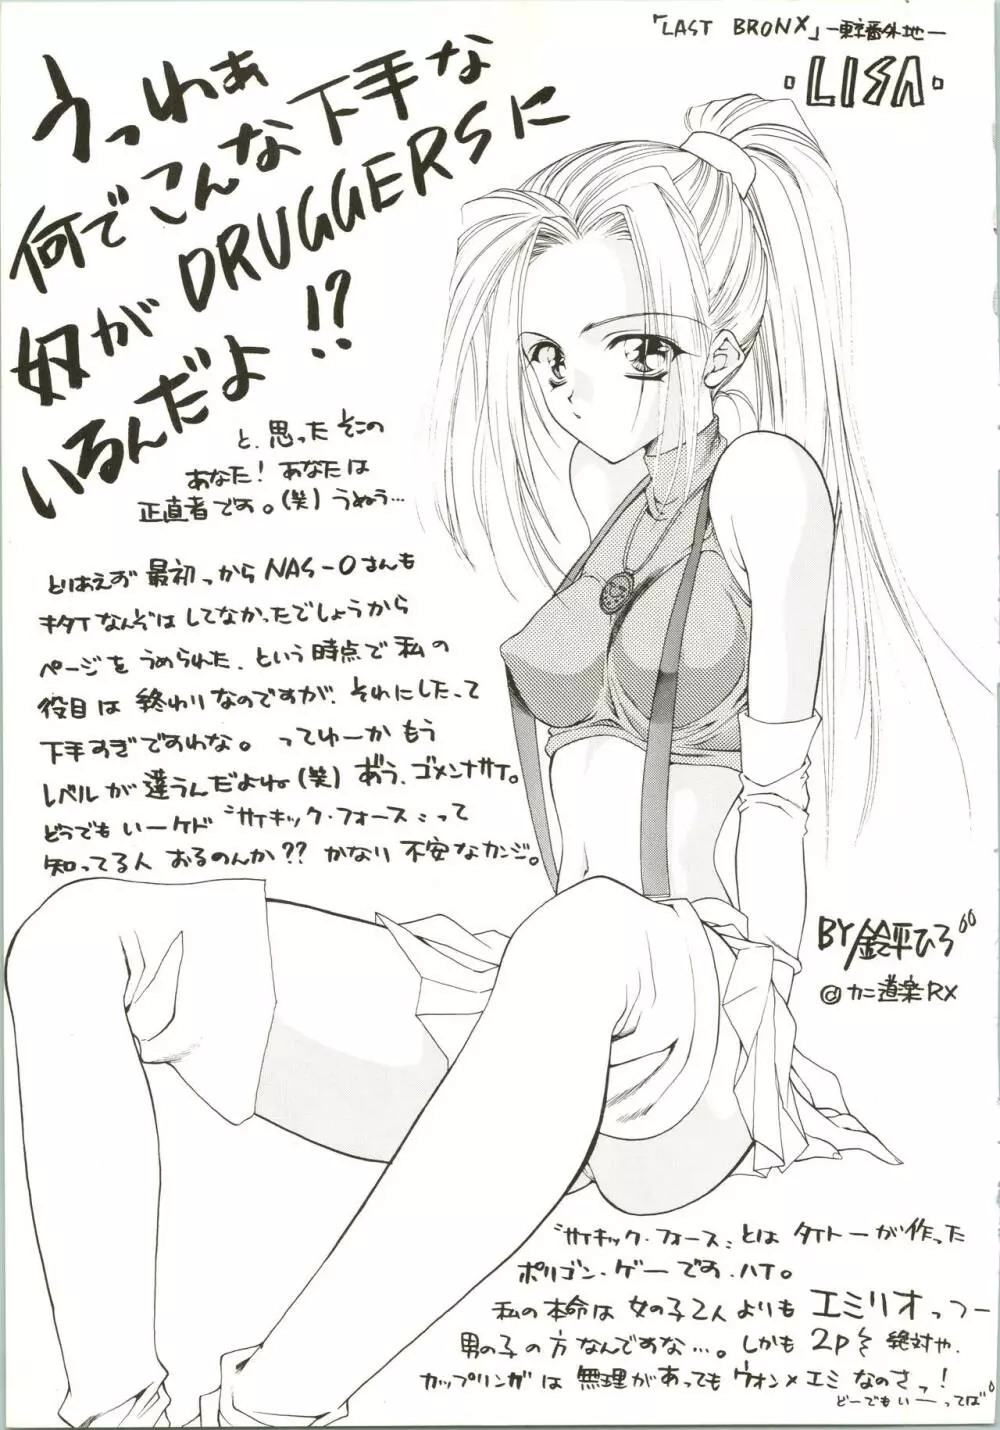 「LAST BRONX」―東京番外地―
・LISA・
うっわぁ
何でこんな下手な
奴がDRUGGERSに
いるんだよ!!?
と、思ったそこの
あなた!あなたは
正直者です。(笑)うぬう…
とりあえず最初っからNAS-Oさんも
キタイなんぞはしてなかったでしょうから
ページをうめられた、という時点で私の
役目は終わりなのですが、それにしたって
下手すぎですわな。ってゆーかもう
レベルが違うんだよね(笑)あう、ゴメンナサイ。
どうでもいーケド“サイキック・フォース”って
知ってる人おるのんか??かなり不安なカンジ。
BY鈴平ひろ
@カニ道楽RX
“サイキック・フォース”とはタイトーが作った
ポリゴン・ゲーです、ハイ。
私の本命は女の子2人よりもエミリオっつー
男の子の方なんですな…。しかも2P〜絶対や、
カップリングは無理があってもウォン×エミなのさっ!
どーでもいーってば